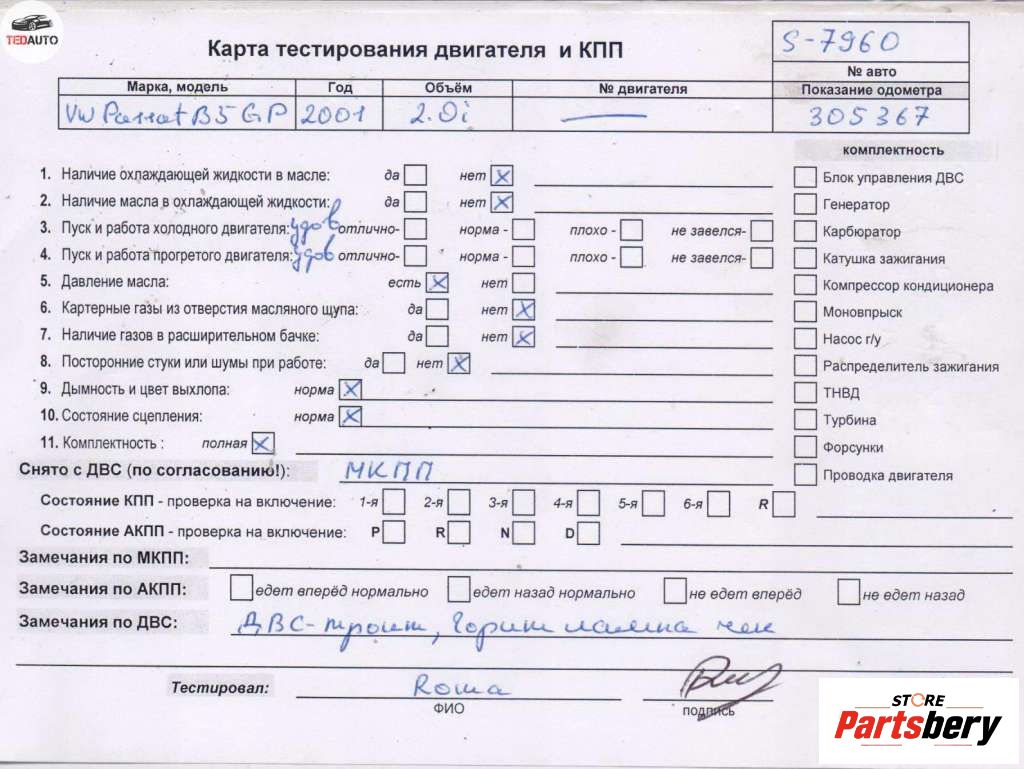 TEDAUTO
Карта тестирования двигателя и КПП
S-7960
№ авто
Марка, модель Год Объём № двигателя Показание одометра
VW Passat B5 GP 2001 2.0i — 305367
комплектность
1. Наличие охлаждающей жидкости в масле: да нет X
2. Наличие масла в охлаждающей жидкости: да нет X
3. Пуск и работа холодного двигателя: удов отлично- норма - плохо - не завелся-
4. Пуск и работа прогретого двигателя: удов отлично- норма - плохо - не завелся-
5. Давление масла: есть X нет
6. Картерные газы из отверстия масляного щупа: да нет X
7. Наличие газов в расширительном бачке: да нет X
8. Посторонние стуки или шумы при работе: да нет X
9. Дымность и цвет выхлопа: норма X
10. Состояние сцепления: норма X
11. Комплектность : полная X
Блок управления ДВС
Генератор
Карбюратор
Катушка зажигания
Компрессор кондиционера
Моновпрыск
Насос г/у
Распределитель зажигания
ТНВД
Турбина
Форсунки
Проводка двигателя
Снято с ДВС (по согласованию!): МКПП
Состояние КПП - проверка на включение: 1-я 2-я 3-я 4-я 5-я 6-я R
Состояние АКПП - проверка на включение: P R N D
Замечания по МКПП:
Замечания по АКПП: едет вперёд нормально едет назад нормально не едет вперёд не едет назад
Замечания по ДВС: ДВС-троит, Горит лампа чек
Тестировал: Рома
ФИО подпись
STORE
Partsbery